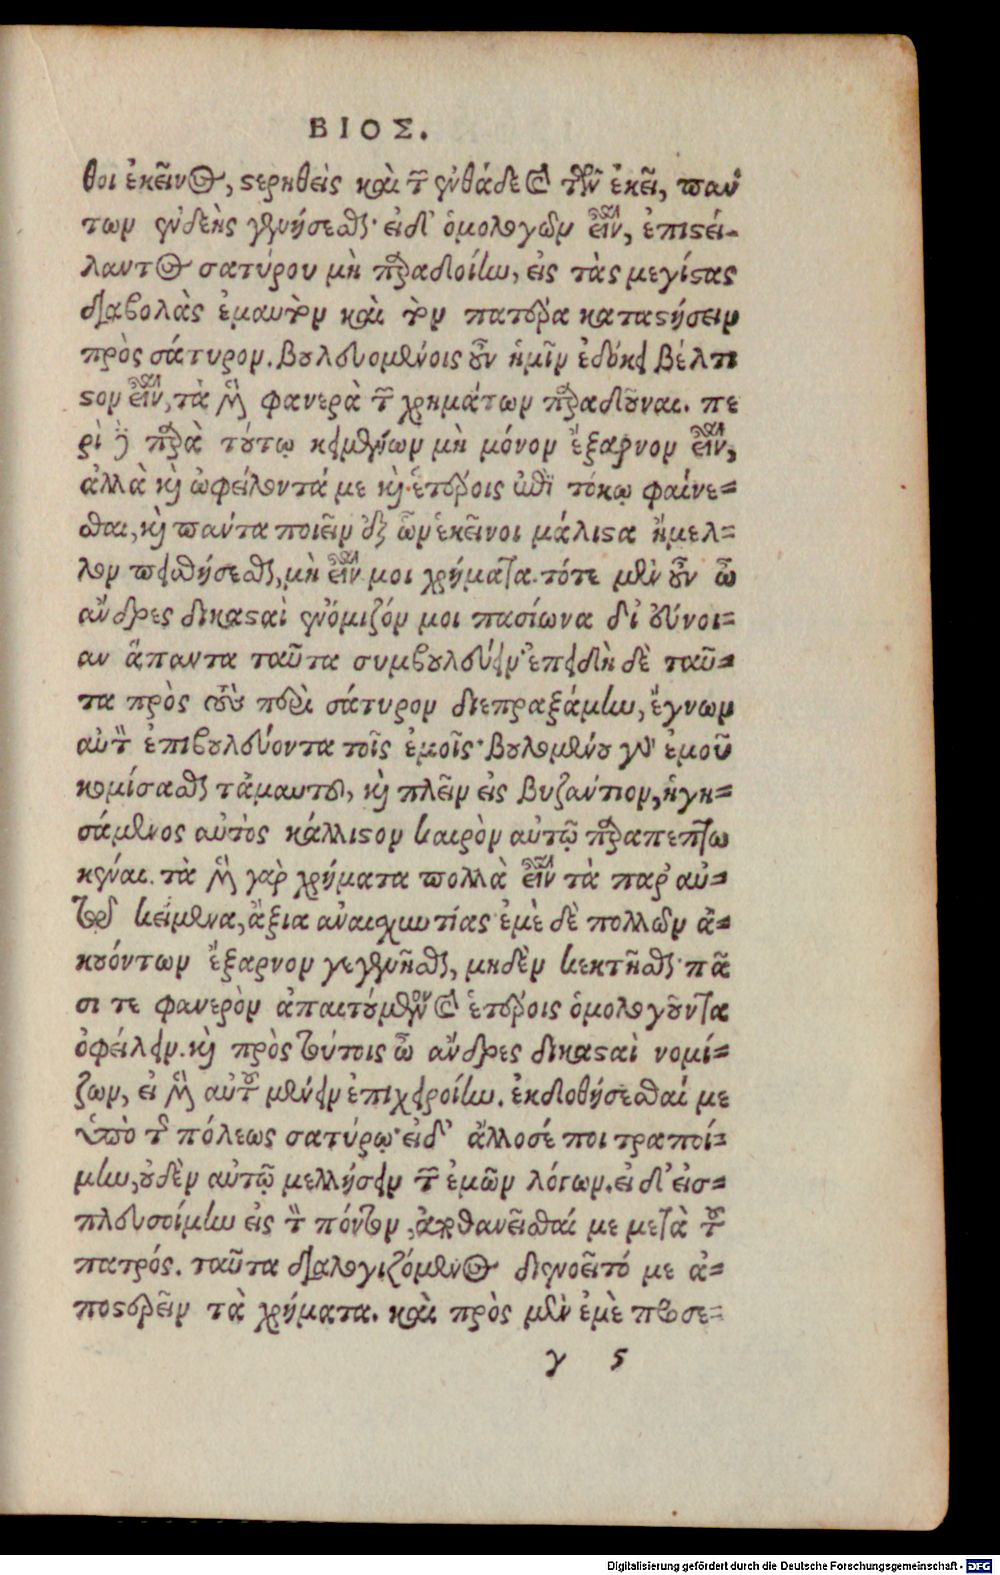 ΒΙΟΣ.
θοι ἐκεῖνος, στερηθεὶς καὶ τῶν ἐνθάδε καὶ τῶν ἐκεῖ, πάν
των ἐνδεὴς γενήσεσθαι· εἰ δ' ὁμολογῶν εἶναι, ἐπιστεί-
λαντος σατύρου μὴ παραδοίην, εἰς τὰς μεγίστας
διαβολὰς ἐμαυτὸν καὶ τὸν πατέρα καταστήσειν
πρὸς σάτυρον. βουλευομένοις οὖν ἡμῖν ἐδόκει βέλτι
στον εἶναι, τὰ μὲν φανερὰ τῶν χρημάτων παραδοῦναι. πε
ρὶ δὲ παρὰ τούτῳ κειμένων μὴ μόνον ἔξαρνον εἶναι,
ἀλλὰ καὶ ὀφείλοντά με καὶ ἑτέροις ἐπὶ τόκῳ φαίνε=
σθαι, καὶ πάντα ποιεῖν ἐξ ὧν ἐκεῖνοι μάλιστα ἤμελ=
λον πεισθήσεσθαι, μὴ εἶναι μοι χρήματα. τότε μὲν οὖν ὦ
ἄνδρες δικασταὶ ἐνόμιζόν μοι πασίωνα δι' εὔνοι=
αν ἅπαντα ταῦτα συμβουλεύειν· ἐπειδὴ δὲ ταῦ=
τα πρὸς τοὺς περὶ σάτυρον διεπραξάμην, ἔγνων
αὐτὸν ἐπιβουλεύοντα τοῖς ἐμοῖς· βουλομένου γὰρ ἐμοῦ
κομίσασθαι τἀμαυτοῦ, καὶ πλεῖν εἰς βυζάντιον, ἡγη=
σάμενος αὐτὸς κάλλιστον καιρὸν αὐτῷ παραπεπτω
κέναι. τὰ μὲν γὰρ χρήματα πολλὰ εἶναι τὰ παρ' αὐ=
τοῦ κείμενα, ἄξια ἀναισχυντίας ἐμὲ δὲ πολλῶν ἀ=
κουόντων ἔξαρνον γεγενῆσθαι, μηδὲν κεκτῆσθαι· πᾶ
σι τε φανερὸν ἀπαιτούμενον καὶ ἑτέροις ὁμολογοῦντα
ὀφείλειν. καὶ πρὸς τούτοις ὦ ἄνδρες δικασταὶ νομί=
ζων, εἰ μὲν αὐτοῦ μένειν ἐπιχειροίην. ἐκδοθήσεσθαί με
ὑπὸ τῆς πόλεως σατύρῳ· εἰ δ' ἄλλοσέ ποι τραποί=
μην, οὐδὲν αὐτῷ μελλήσειν τῶν ἐμῶν λόγων. εἰ δ' εἰσ=
πλευσοίμην εἰς τὸν πόντον, ἀποθανεῖσθαί με μετὰ τοῦ
πατρός. ταῦτα διαλογιζόμενος διενοεῖτό με ἀ=
ποστερεῖν τὰ χρήματα. καὶ πρὸς μὲν ἐμὲ προσε=
γ ς
Digitalisierung gefördert durch die Deutsche Forschungsgemeinschaft - DFG